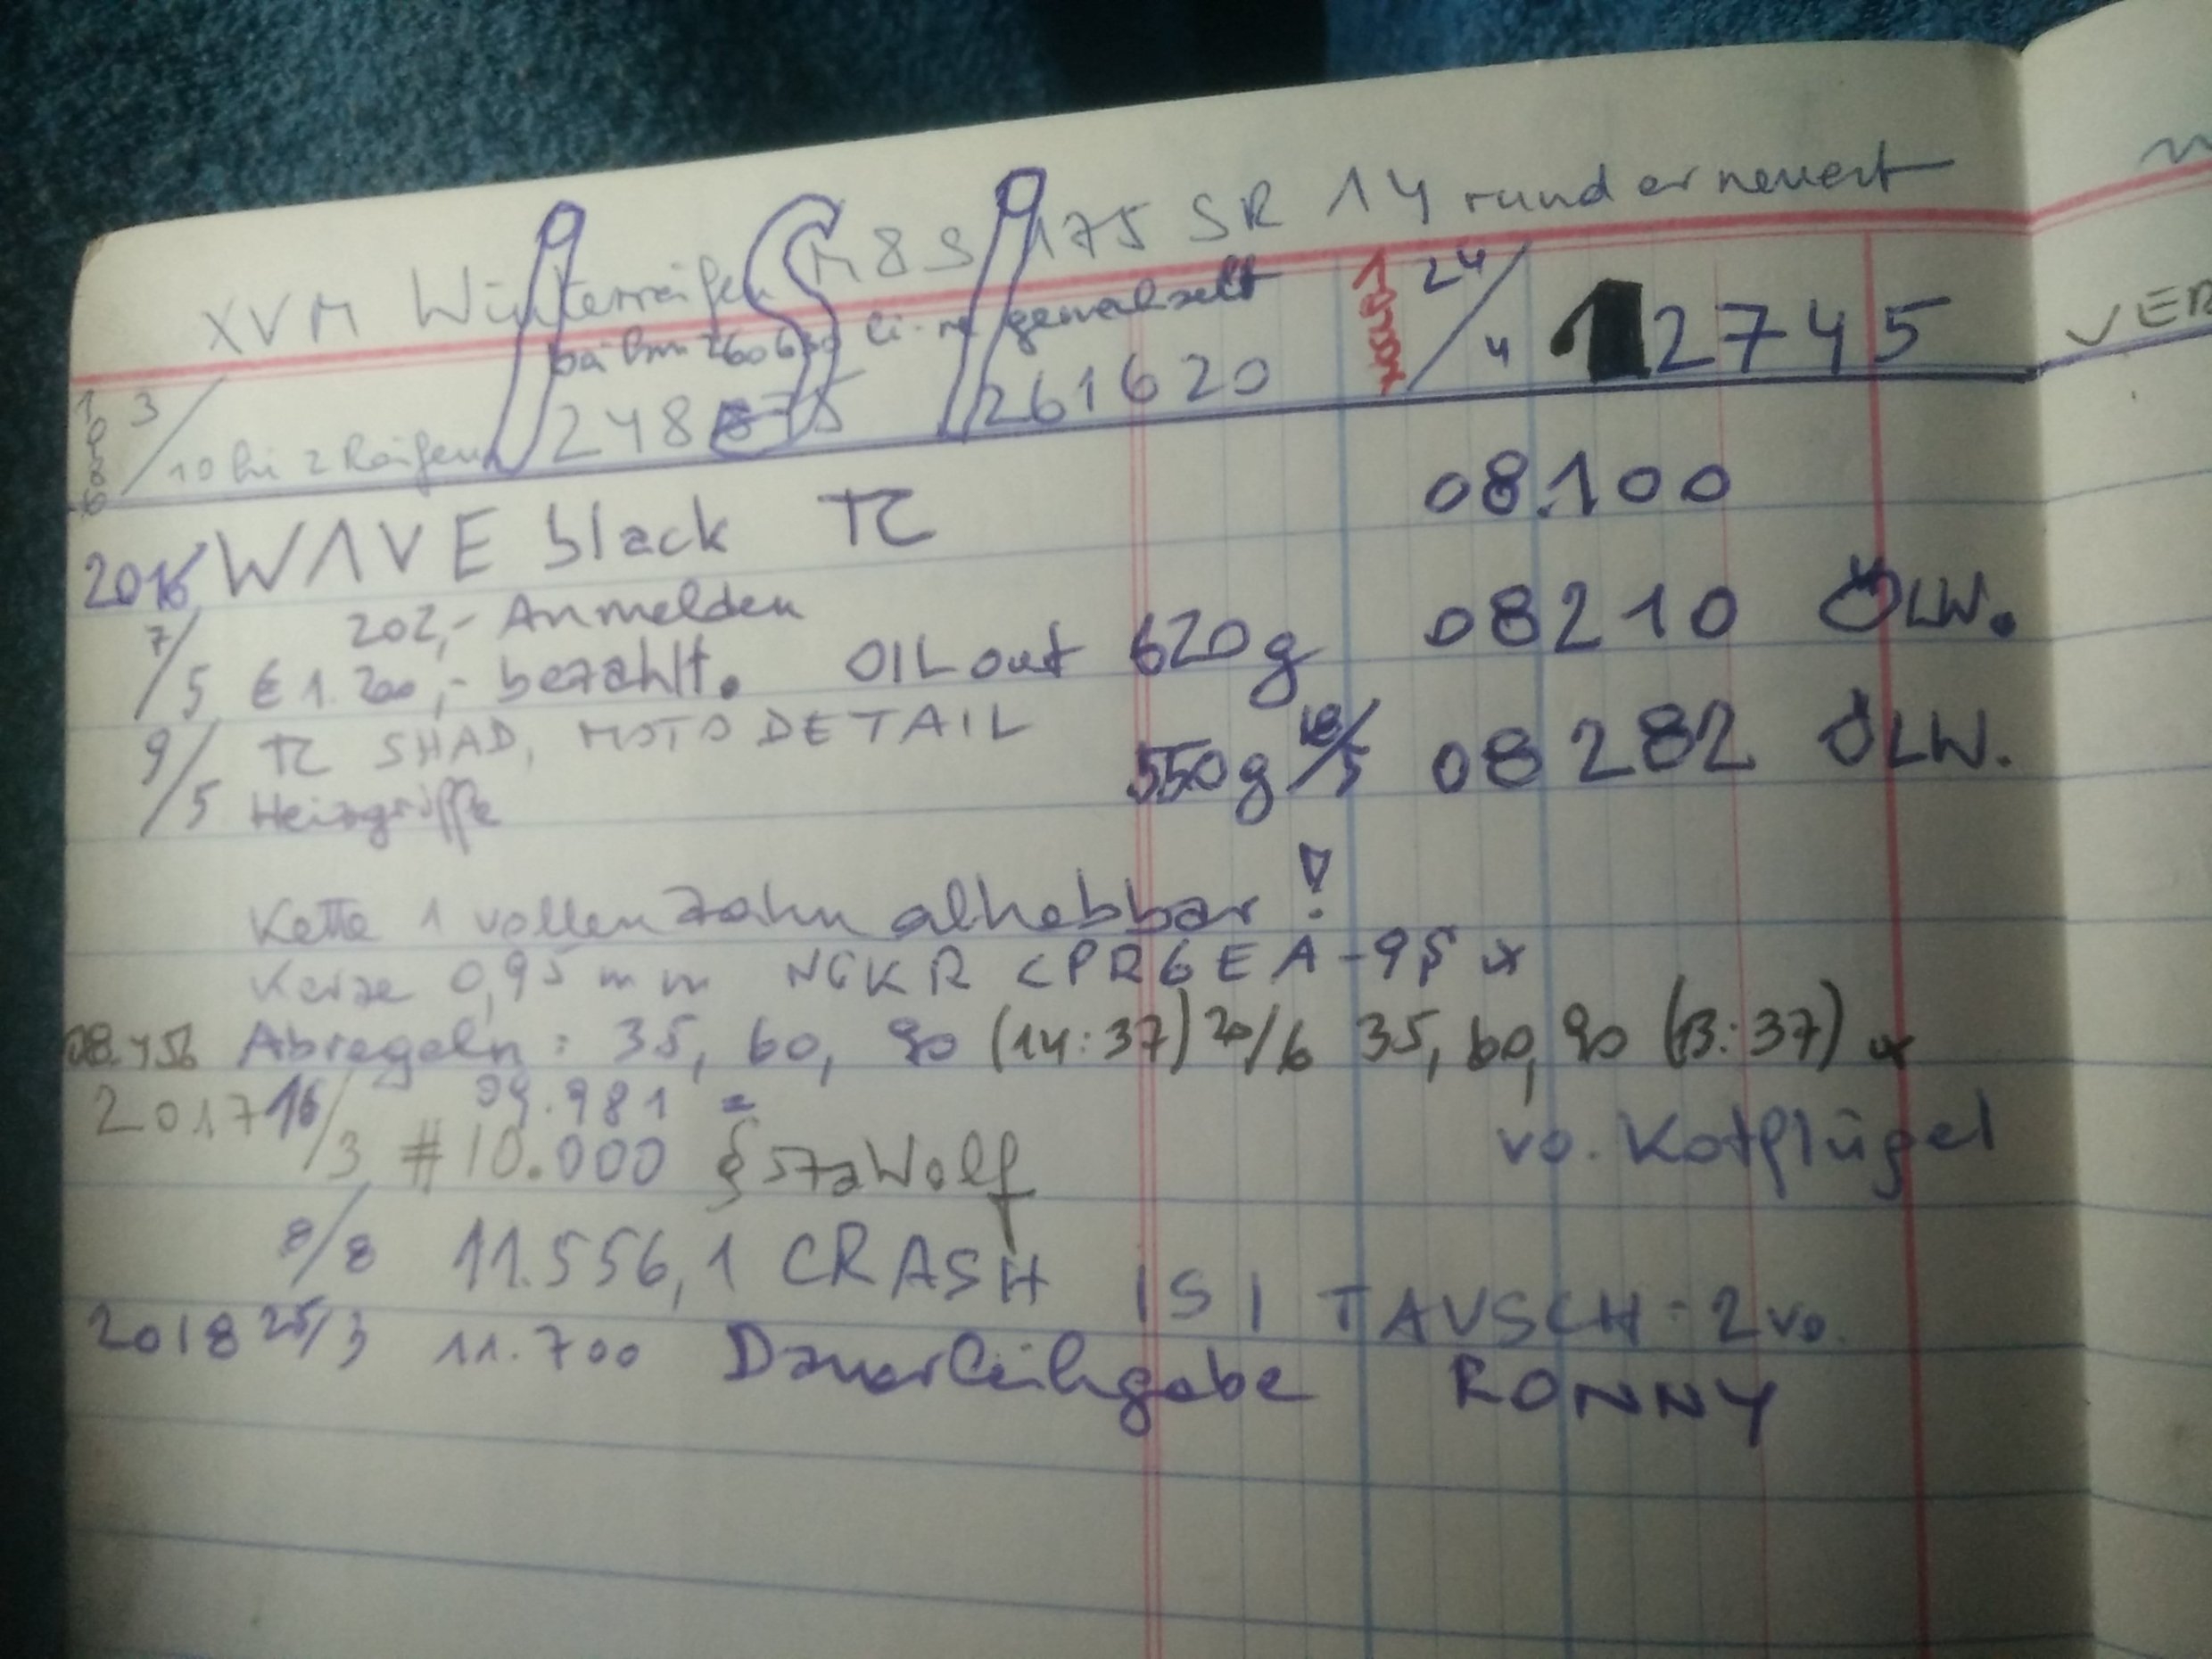 XVM Winterreifen M&S 175 SR 14 runderneuert
bei km 260600 li-re gewechselt
24/4 12745
3/10 hi 2 Reifen 248 261620
WAVE black TC 08.100
2016
202,- Anmelden
7/5 € 1.200,- bezahlt. OIL out 620g 08210 ÖLW.
9/5 TC SHAD, MOTO DETAIL 550g 18/5 08282 ÖLW.
Heizgriffe
Kette 1 vollen Zahn abhebbar!
Kerze 0,95 mm NGKR CPR6EA-9S x
08.456 Abregeln: 35, 60, 90 (14:37) 20/6 35, 60, 90 (13:37) x
2017 16/3 09.981 =
#10.000 §57a Wolf vo. Kotflügel
8/8 11.556,1 CRASH ISI TAUSCH-2 vo.
2018 25/3 11.700 Dauerleihgabe RONNY
VER